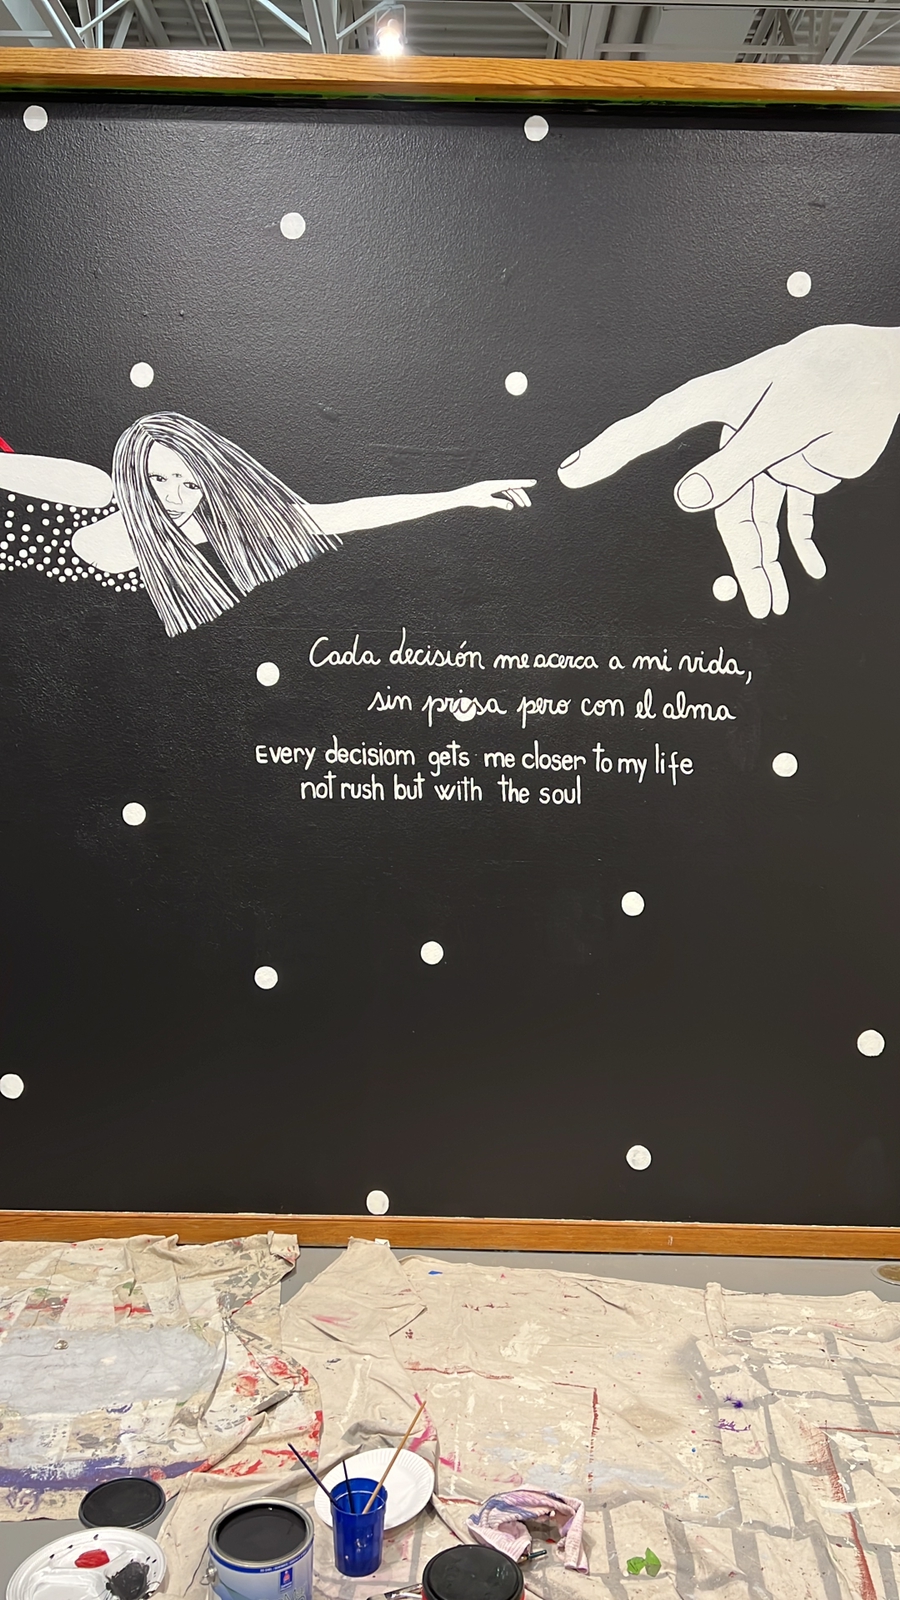 Cada decisión me acerca a mi vida,
sin prisa pero con el alma
Every decisiom gets me closer to my life
not rush but with the soul